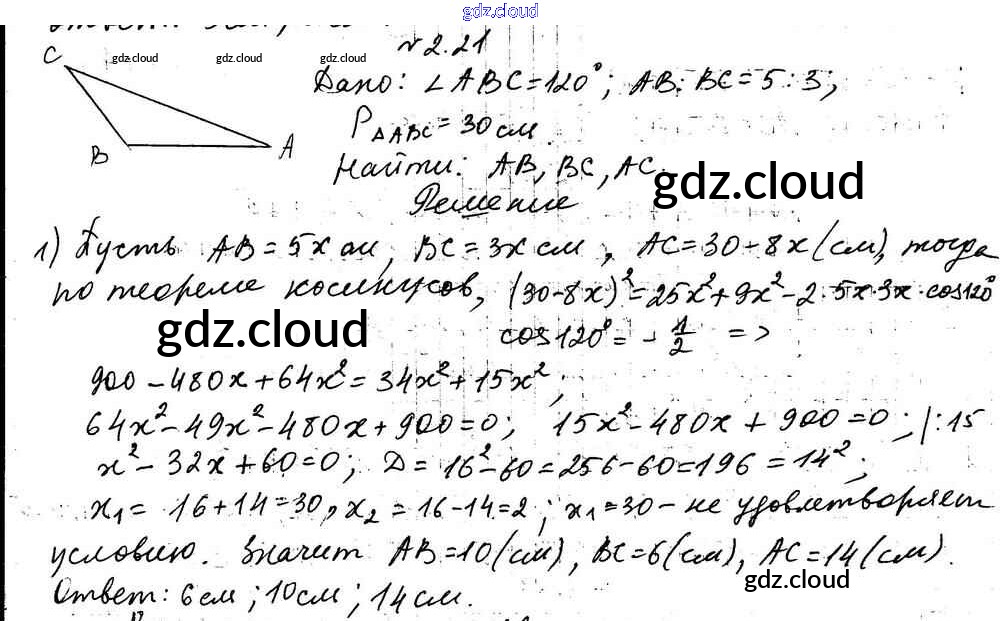 gdz.cloud
№ 2.21
C gdz.cloud gdz.cloud gdz.cloud gdz.cloud
Дано: ∠ABC = 120°; AB : BC = 5 : 3;
P△ABC = 30 см.
B A
Найти: AB, BC, AC.
gdz.cloud
Решение
1) Пусть AB = 5x см, BC = 3x см, AC = 30 - 8x (см), тогда
по теореме косинусов, (30-8x)² = 25x² + 9x² - 2·5x·3x·cos120°
gdz.cloud
cos120° = -1/2 =>
900 - 480x + 64x² = 34x² + 15x²;
64x² - 49x² - 480x + 900 = 0; 15x² - 480x + 900 = 0; |:15
x² - 32x + 60 = 0; D = 16² - 60 = 256 - 60 = 196 = 14²;
x₁ = 16 + 14 = 30, x₂ = 16 - 14 = 2; x₁ = 30 - не удовлетворяет
условию. Значит AB = 10 (см), BC = 6 (см), AC = 14 (см).
gdz.cloud
Ответ: 6 см; 10 см; 14 см.